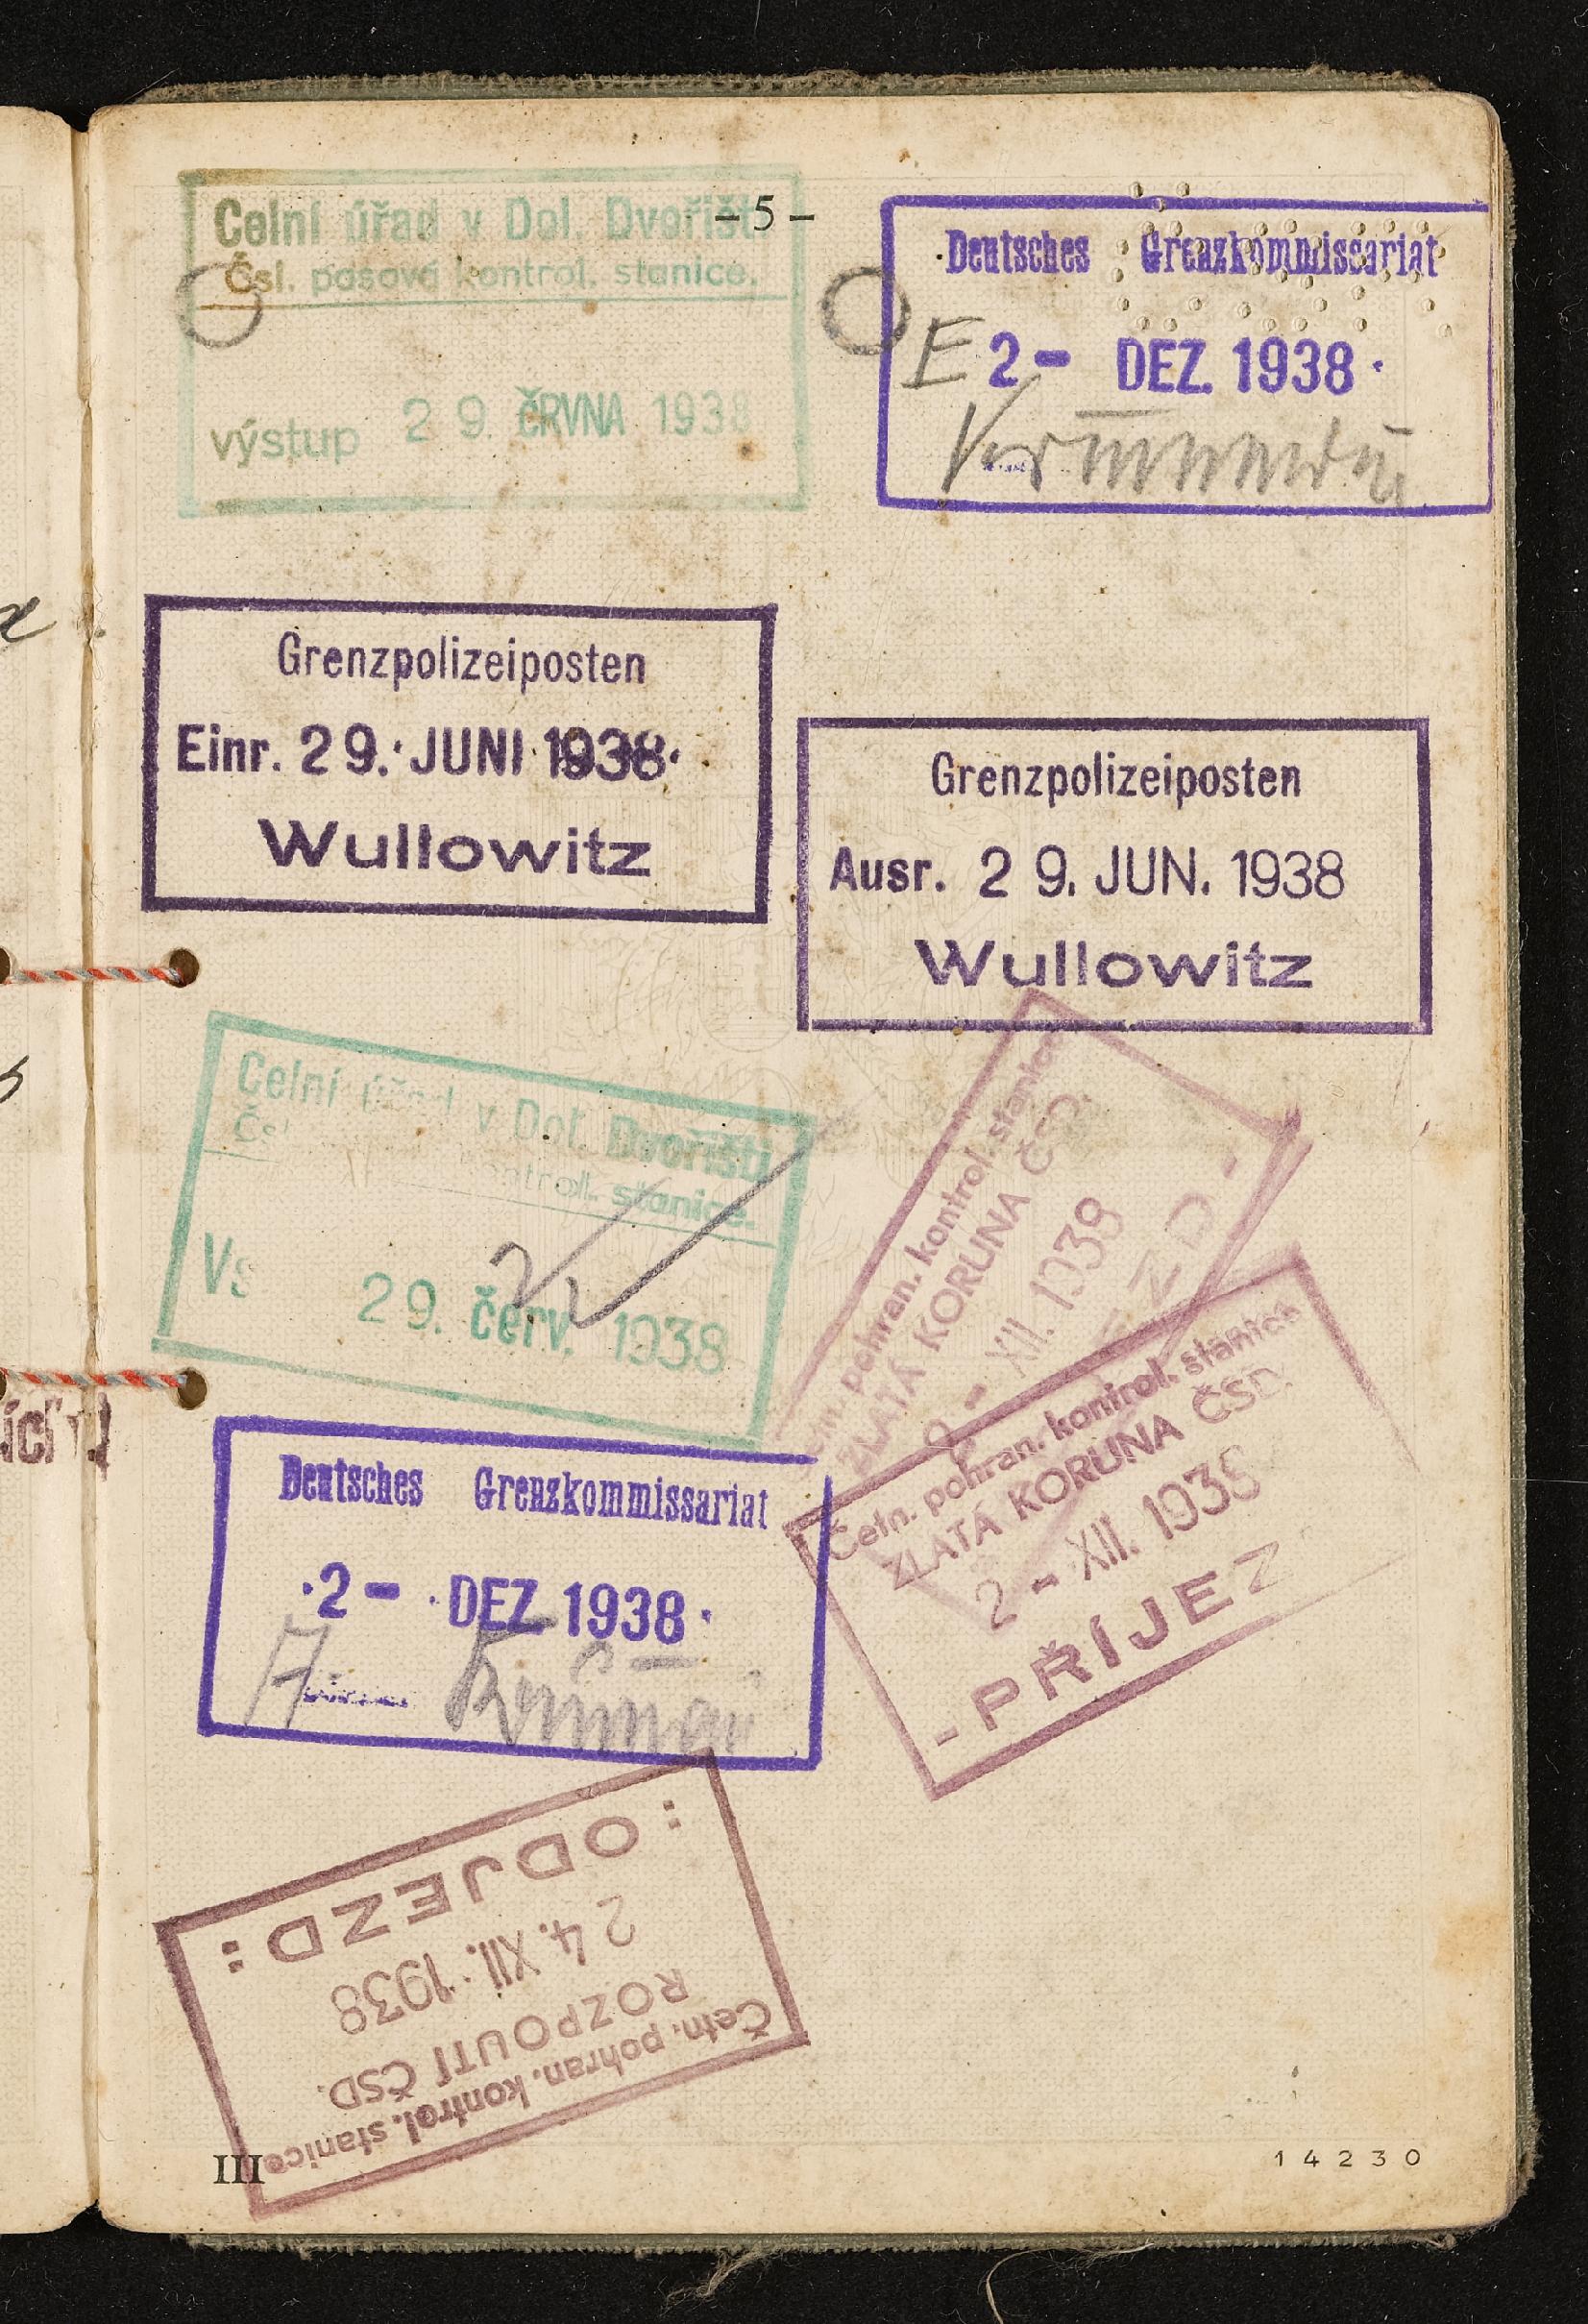 – 5 –
Celní úřad v Dol. Dvořišti
Čsl. pasová kontrol. stanice.
výstup 29. ČRVNA 1938
Deutsches Grenzkommissariat
E 2 - DEZ. 1938
Grenzpolizeiposten
Einr. 29. JUNI 1938
Wullowitz
Grenzpolizeiposten
Ausr. 29. JUN. 1938
Wullowitz
Celní úřad v Dol. Dvořišti
Čsl kontrol. stanice.
Vs 29. červ. 1938
četn. pohran. kontrol. stanice
ZLATÁ KORUNA ČSD.
2 - XII. 1938
Četn. pohran. kontrol. stanice
ZLATÁ KORUNA ČSD.
2 - XII. 1938
- PŘÍJEZ
Deutsches Grenzkommissariat
2 - DEZ 1938
A
Četn. pohran. kontrol. stanice
ROZPOUTÍ ČSD.
24. XII. 1938
: ODJEZD :
III
14230